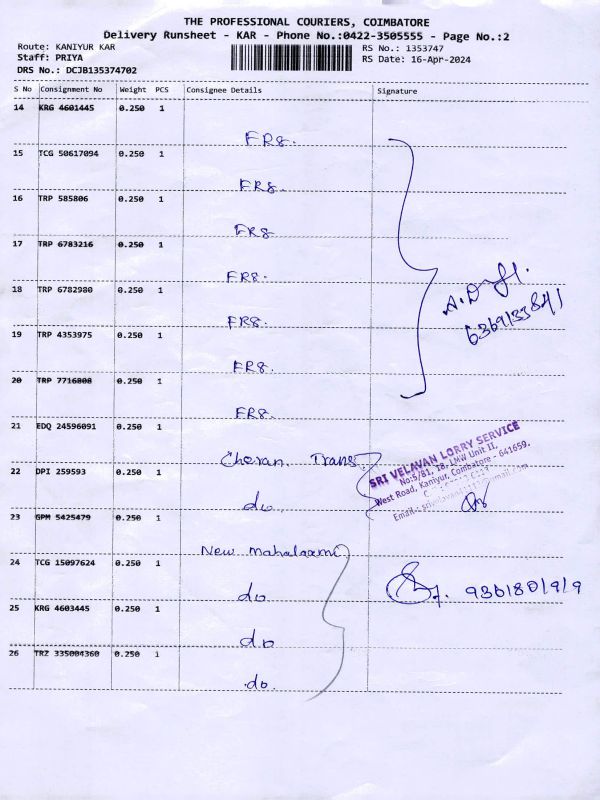 THE PROFESSIONAL COURIERS, COIMBATORE
Delivery Runsheet - KAR - Phone No.:0422-3505555 - Page No.:2
Route: KANIYUR KAR
Staff: PRIYA
DRS No.: DCJB135374702
RS No.: 1353747
RS Date: 16-Apr-2024
S No Consignment No Weight PCS Consignee Details Signature
14 KRG 4601445 0.250 1
FR8.
15 TCG 50617094 0.250 1
FR8.
16 TRP 585806 0.250 1
FR8
17 TRP 6783216 0.250 1
FR8.
18 TRP 6782980 0.250 1
FR8.
19 TRP 4353975 0.250 1
FR8.
20 TRP 7716808 0.250 1
FR8.
A.D
6369133841
21 EDQ 24596091 0.250 1
Cheran. Trans
22 DPI 259593 0.250 1
do.
SRI VELAVAN LORRY SERVICE
No:5/81, 18, LMW Unit II,
West Road, Kaniyur, Coimbatore - 641659.
Email:
23 GPM 5425479 0.250 1
New mahalaxmi
24 TCG 15097624 0.250 1
do
25 KRG 4603445 0.250 1
do
26 TRZ 335004360 0.250 1
do.
9361801919